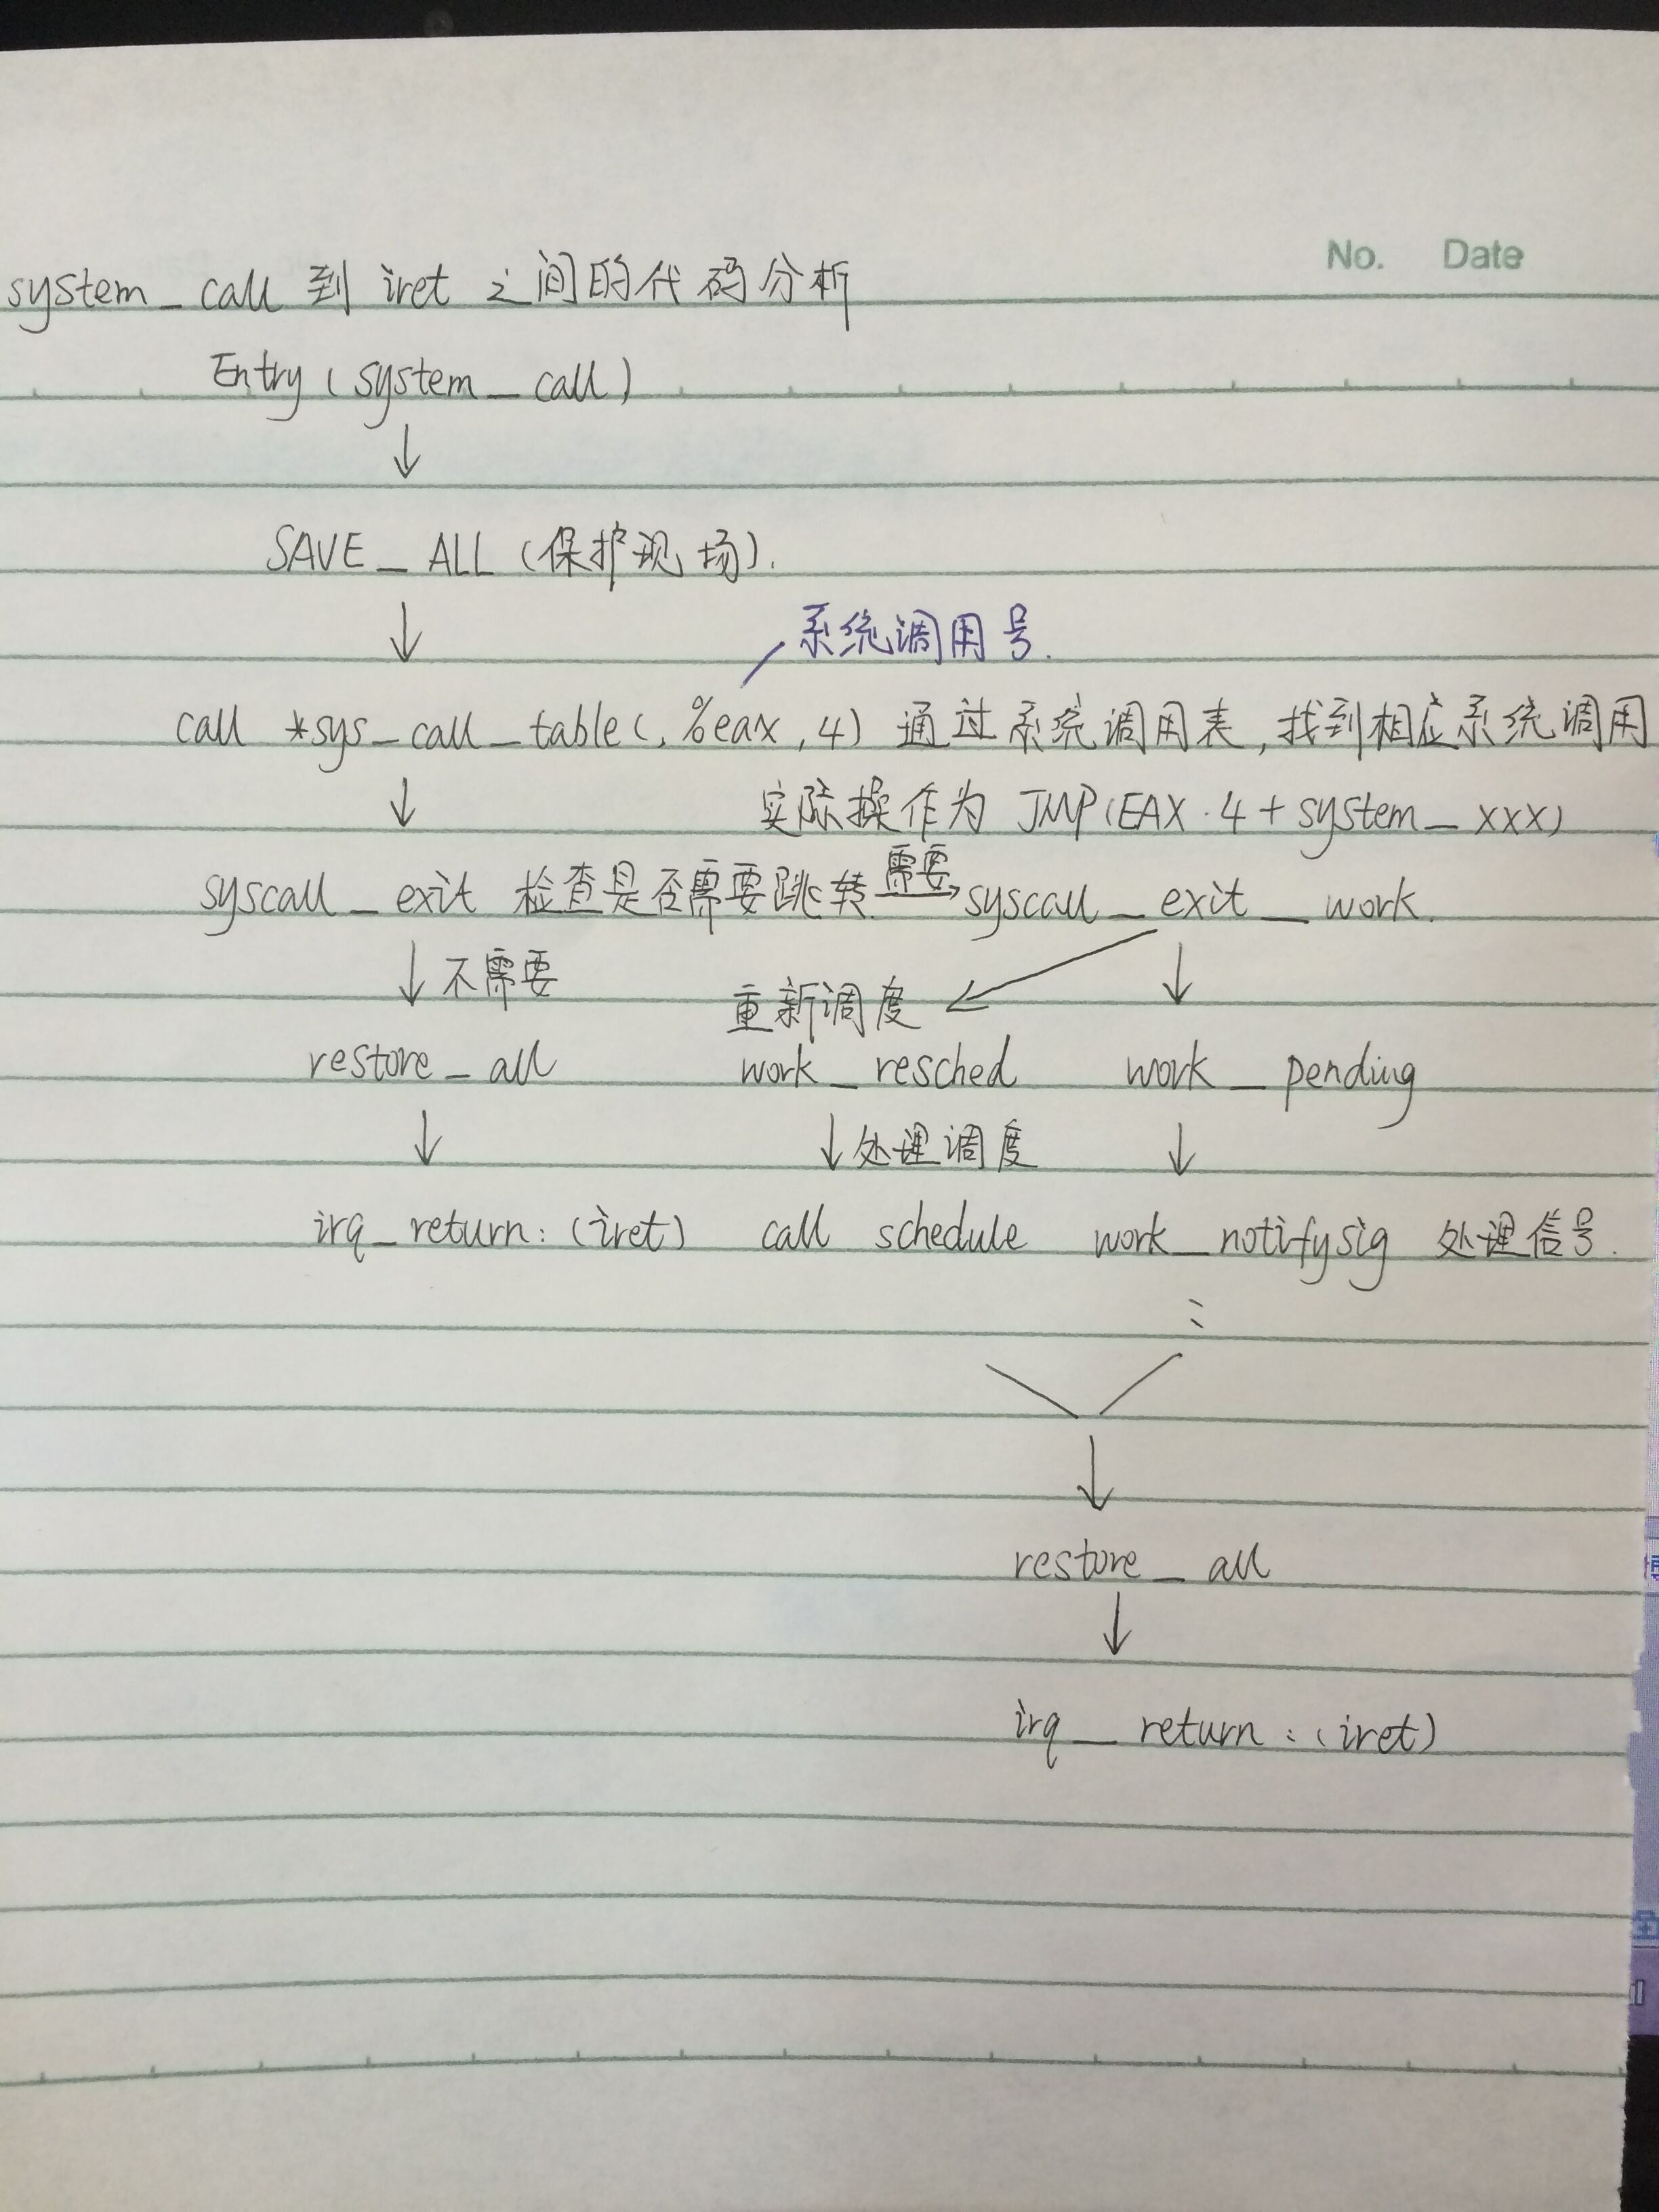 No. Date
system_call 到 iret 之间的代码分析
Entry (system_call)
↓
SAVE_ALL (保护现场).
↓ 系统调用号.
call *sys_call_table(,%eax,4) 通过系统调用表,找到相应系统调用
↓ 实际操作为 JMP(EAX·4+system_xxx)
syscall_exit 检查是否需要跳转. 需要→ syscall_exit_work.
↓ 不需要 重新调度 ↓
restore_all work_resched work_pending
↓ ↓ 处理调度 ↓
irq_return: (iret) call schedule work_notifysig 处理信号.
↓
restore_all
↓
irq_return: (iret)